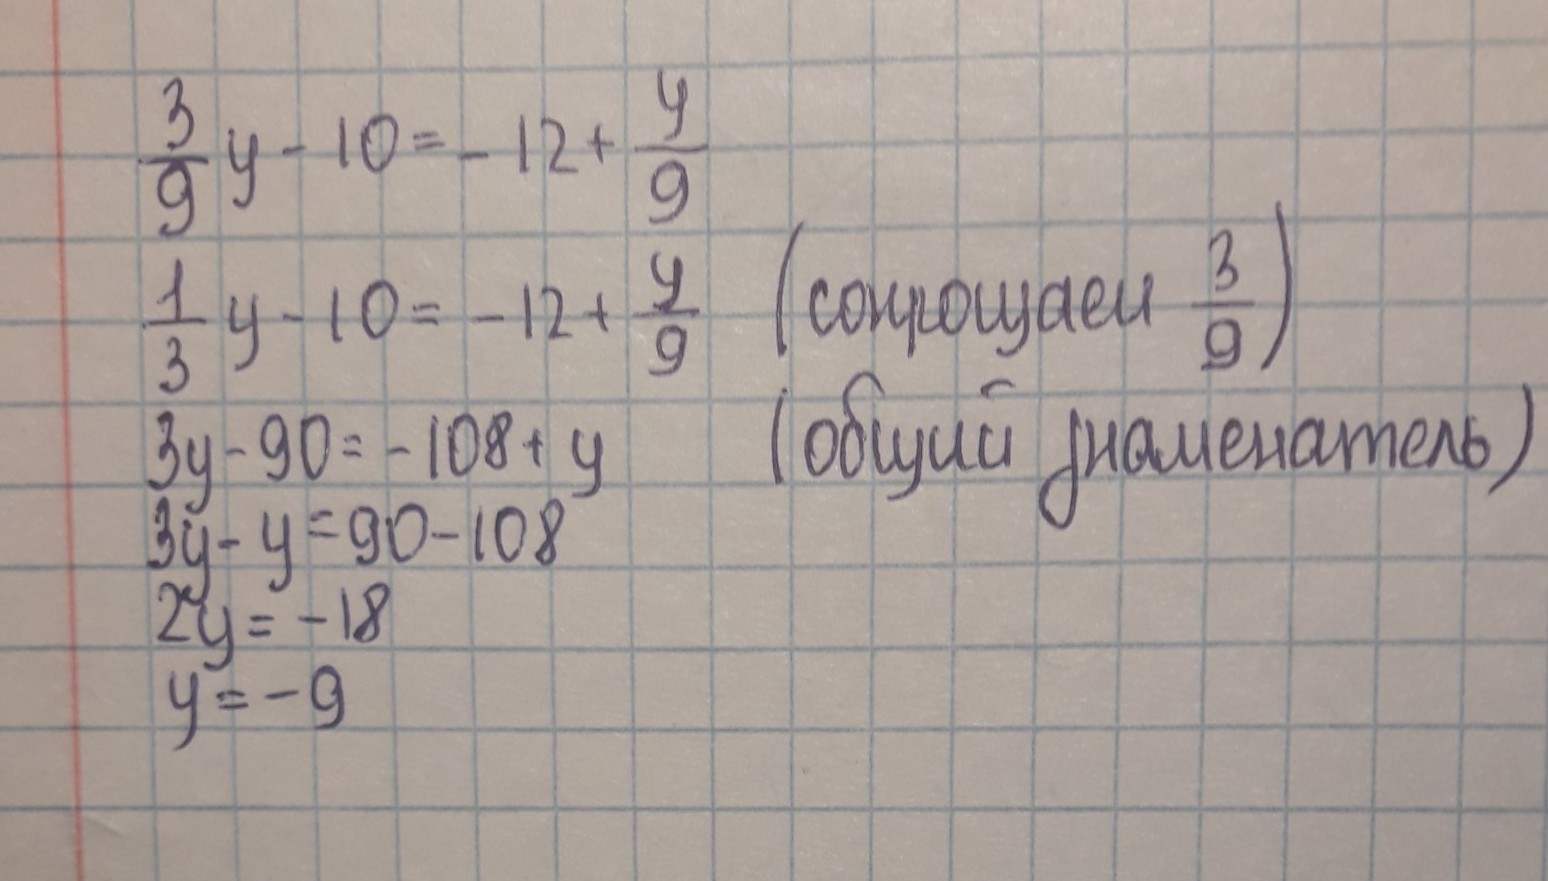 3/9 y - 10 = - 12 + y/9
1/3 y - 10 = - 12 + y/9 (сокрощаем 3/9)
3y - 90 = - 108 + y (общий знаменатель)
3y - y = 90 - 108
2y = - 18
y = - 9